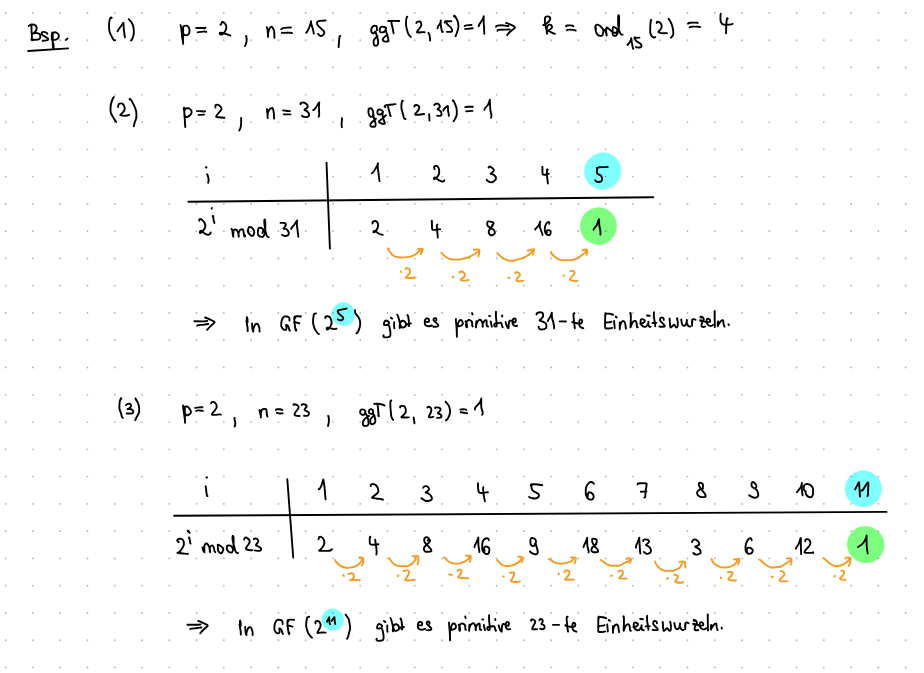 Bsp. (1) p = 2 , n = 15 , ggT (2, 15) = 1 ⇒ k = ord₁₅ (2) = 4
(2) p = 2 , n = 31 , ggT ( 2, 31) = 1
i | 1 2 3 4 5
2ⁱ mod 31 | 2 4 8 16 1
·2 ·2 ·2 ·2
⇒ In GF (2⁵) gibt es primitive 31-te Einheitswurzeln.
(3) p = 2 , n = 23 , ggT ( 2, 23) = 1
i | 1 2 3 4 5 6 7 8 9 10 11
2ⁱ mod 23 | 2 4 8 16 9 18 13 3 6 12 1
·2 ·2 ·2 ·2 ·2 ·2 ·2 ·2 ·2 ·2
⇒ In GF (2¹¹) gibt es primitive 23-te Einheitswurzeln.